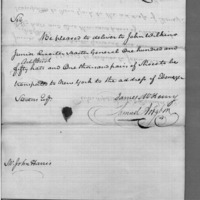 Sir,
Be pleased to deliver to John Wilkins
Junior Quarter Master General One hundred and
fifty hats and One thousand pairs of Shoes to be
transported to New York to the address of Ebenezer
Stevens Esqr.
James McHenry
Samuel Hodgdon
Mr John Harris